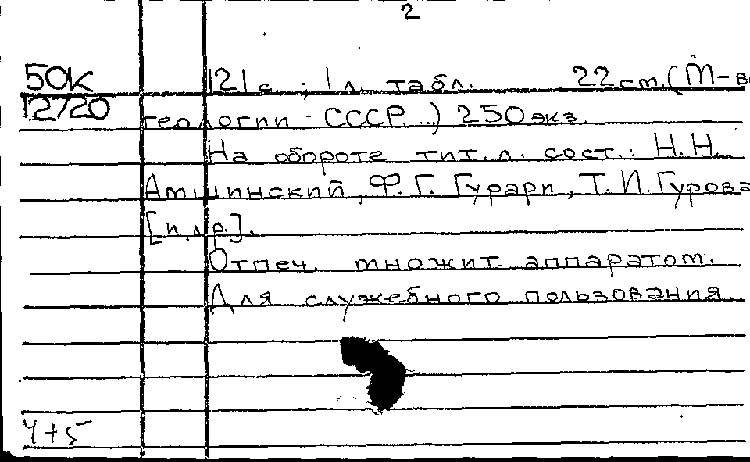 2
50К 121 с., 1 л. табл. 22 см. (М-во
12720 геологии СССР.) 250 экз.
На обороте тит. л. сост.: Н.Н.
Амшинский, Ф.Г. Гурари, Т.И. Гурова
[и др.].
Отпеч. множит. аппаратом.
Для служебного пользования
4+5